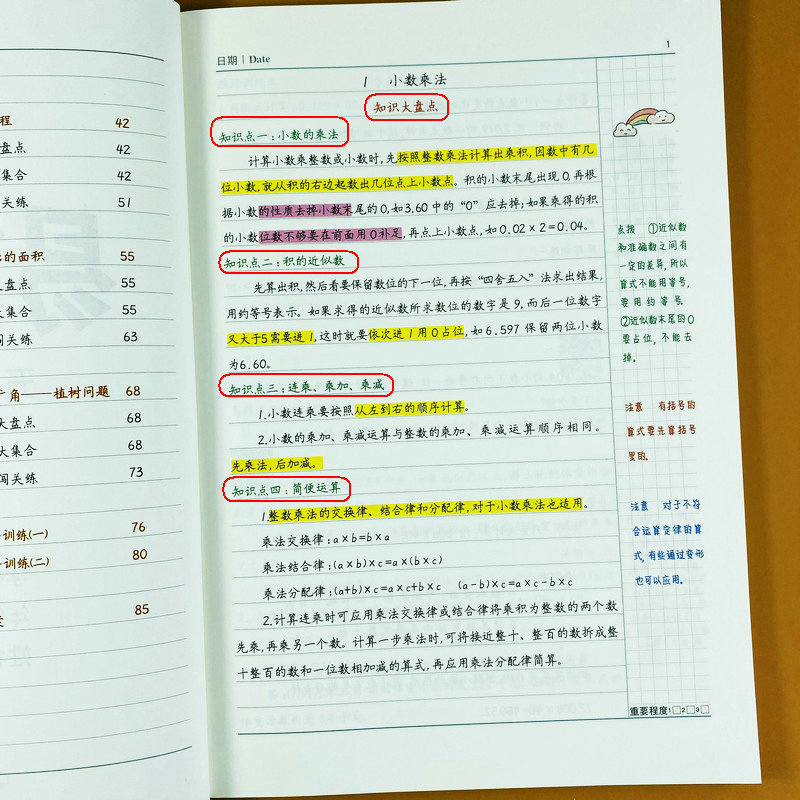 程 42
盘点 42
集合 42
关练 51
的面积 55
盘点 55
大集合 55
闯关练 63
广角——植树问题 68
大盘点 68
大集合 68
闯关练 73
训练(一) 76
训练(二) 80
85
日期 | Date
1
1 小数乘法
知识大盘点
知识点一:小数的乘法
计算小数乘整数或小数时,先按照整数乘法计算出乘积,因数中有几
位小数,就从积的右边起数出几位点上小数点。积的小数末尾出现0,再根
据小数的性质去掉小数末尾的0,如3.60中的“0”应去掉;如果乘得的积
的小数位数不够要在前面用0补足,再点上小数点,如0.02×2=0.04。
知识点二:积的近似数
先算出积,然后看要保留数位的下一位,再按“四舍五入”法求出结果,
用约等号表示。如果求得的近似数所求数位的数字是9,而后一位数字
又大于5需要进1,这时就要依次进1用0占位,如6.597保留两位小数
为6.60。
知识点三:连乘、乘加、乘减
1.小数连乘要按照从左到右的顺序计算。
2.小数的乘加、乘减运算与整数的乘加、乘减运算顺序相同。
先乘法,后加减。
知识点四:简便运算
1.整数乘法的交换律、结合律和分配律,对于小数乘法也适用。
乘法交换律:a×b=b×a
乘法结合律:(a×b)×c=a×(b×c)
乘法分配律:(a+b)×c=a×c+b×c (a-b)×c=a×c-b×c
2.计算连乘时可应用乘法交换律或结合律将乘积为整数的两个数
先乘,再乘另一个数。计算一步乘法时,可将接近整十、整百的数拆成整
十整百的数和一位数相加减的算式,再应用乘法分配律简算。
点拨 ①近似数
和准确数之间有
一定的差异,所以
算式不能用等号,
要用约等号.
②近似数末尾的0
要占位,不能去
掉。
注意 有括号的
算式要先算括号
里的.
注意 对于不符
合运算定律的算
式,有些通过变形
也可以应用.
重要程度1□2□3□